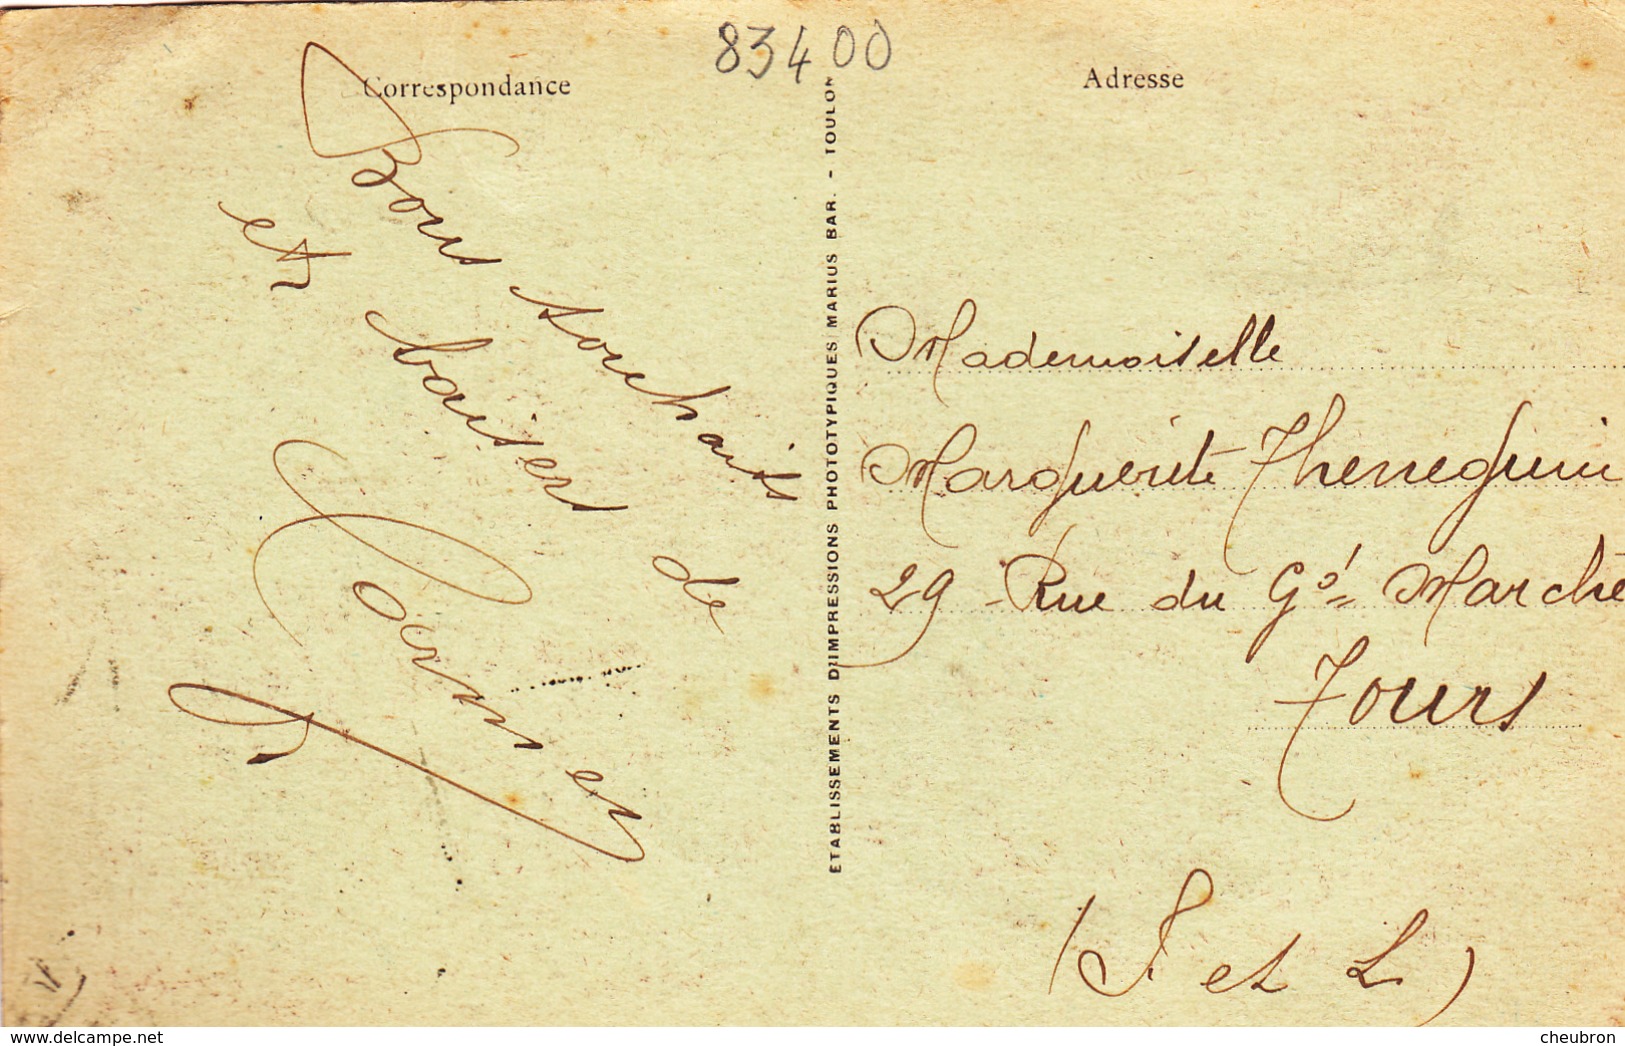 83400
Correspondance
Adresse
Bons souhaits
et baisers de
ETABLISSEMENTS D'IMPRESSIONS PHOTOTYPIQUES MARIUS BAR. - TOULON
Mademoiselle
Marguerite Thenneguin
29 Rue du Gal Marché
Tours
(I. et L.)
www.delcampe.net
cheubron